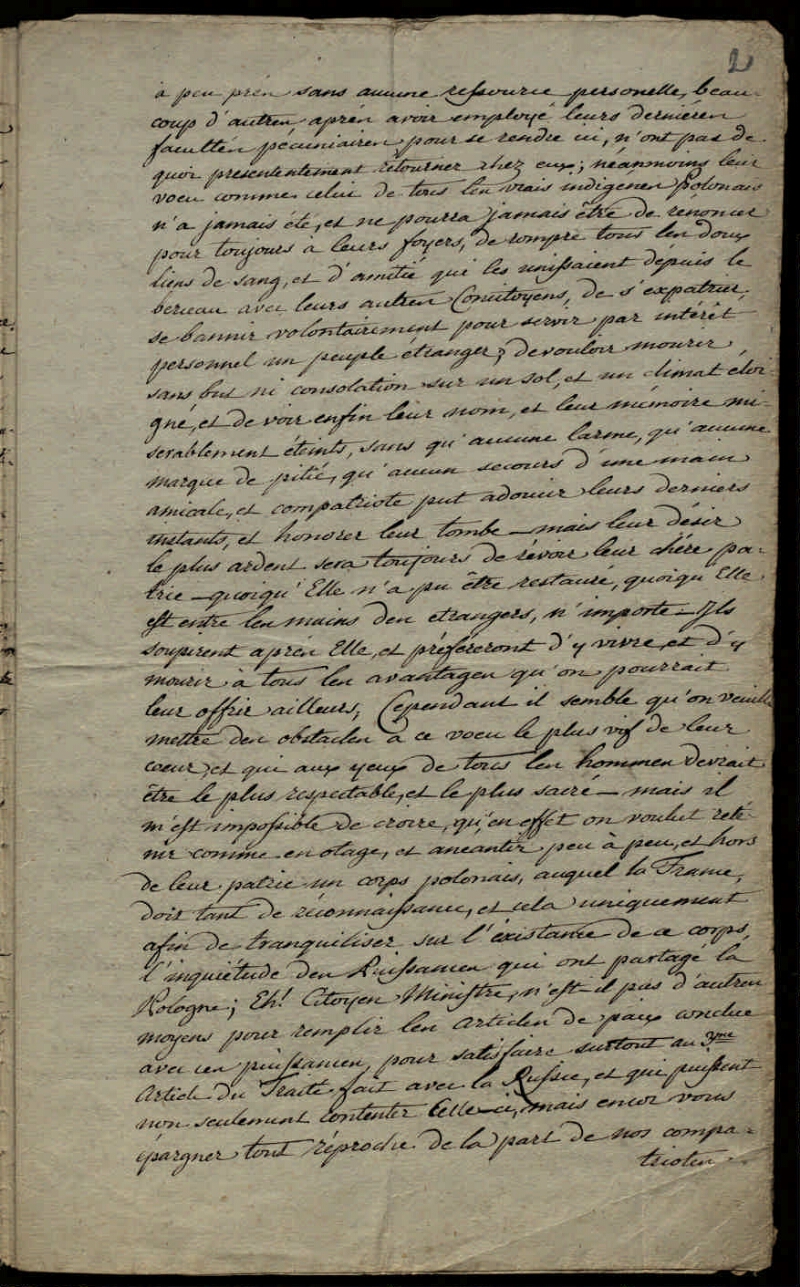 2
à peu près sans aucune ressource personelle, beau-
coup d'autres après avoir employé leurs dernieres
facultés pécuniaires pour se rendre ici, n'ont pas de
quoi présententement retourner chez eux; néanmoins leur
voeu comme celui de tous les vrais indigenes Polonais
n'a jamais été, et ne pourra jamais être de renoncer
pour toujours à leurs foyers, de rompre tous les doux
liens de sang, et d'amitié qui les unissaient depuis le
berceau avec leurs autres Concitoyens, de s'expatrier,
se bannir volontairement pour servir par intérêt
personnel un peuple étranger; de vouloir mourir,
sans but ni consolation sur un sol, et un climat eloi-
gné, et de voir enfin leur nom, et leur mémoire mi-
serablement éteints, sans qu'aucune larme, qu'aucune
marque de pitié, qu'aucun secours d'une main
amicale, et compatriote put adoucir leurs derniers
instants, et honorer leur tombe — mais leur désir
le plus ardent sera toujours de révoir leur chére pa-
trie — quoiqu'Elle n'a pu être restauré, quoiqu'Elle
est entre les mains des etrangers, n'importe — Ils
soupirent après Elle, et préféreront d'y vivre, et d'y
mourir à tous les avantages qu'on pourrait
leur offrir ailleurs, Cependant il semble qu'on veuille
mettre des obstacles à ce voeu le plus vif de leur
coeur, et qui aux yeux de tous les hommes devrait
être le plus respectable, et le plus sacré — mais il
m'est impossible de croire, qu'en effet on voulut rete-
nir comme en otage, et aneantir peu à peu, et hors
de leur patrie un corps polonais, auquel la France,
doit tant de réconnaissance, et cela uniquement
afin de tranquiliser sur l'éxistance de ce corps,
l'inquiétude des Puissances qui ont partagé la
Pologne; Eh! Citoyen Ministre, n'est-il pas d'autres
moyens pour remplir les Articles de paix conclue
avec ces puissances, pour satisfaire surtout au 3me
Article du Traité fait avec la Russie, et qui puissent
non seulement contenter Celle-ci, mais encor vous
épargner tout réproche de la part de nos compa-
triotes